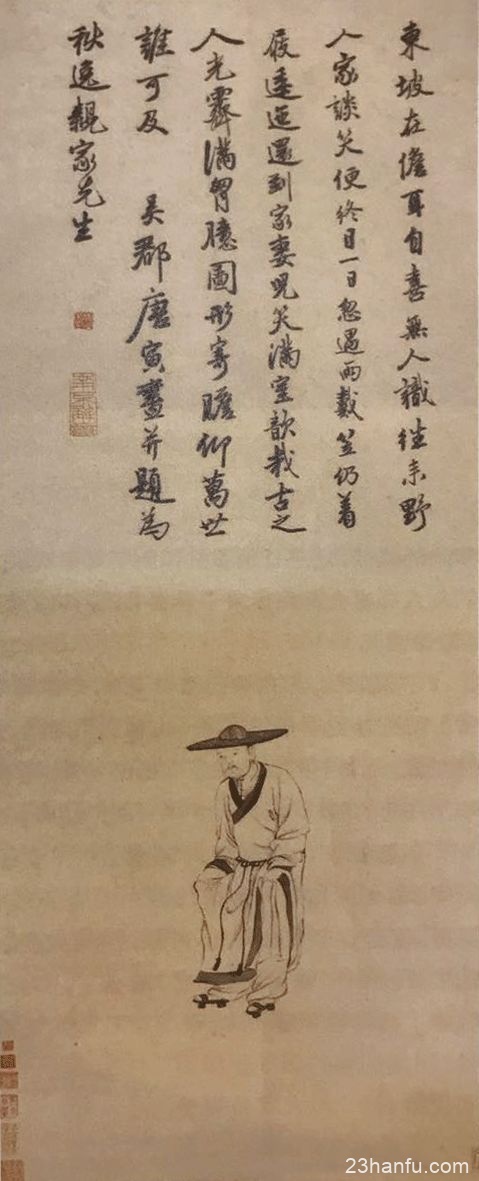 東坡在儋耳自喜無人識往来野
人家談笑便終日一日忽遇雨戴笠仍着
屐逶迤還到家妻児笑滿室歆哉古之
人光霽滿胷臆圖形寄瞻仰萬世
誰可及 吳郡唐寅畫并題為
秋逸親家先生
23hanfu.com